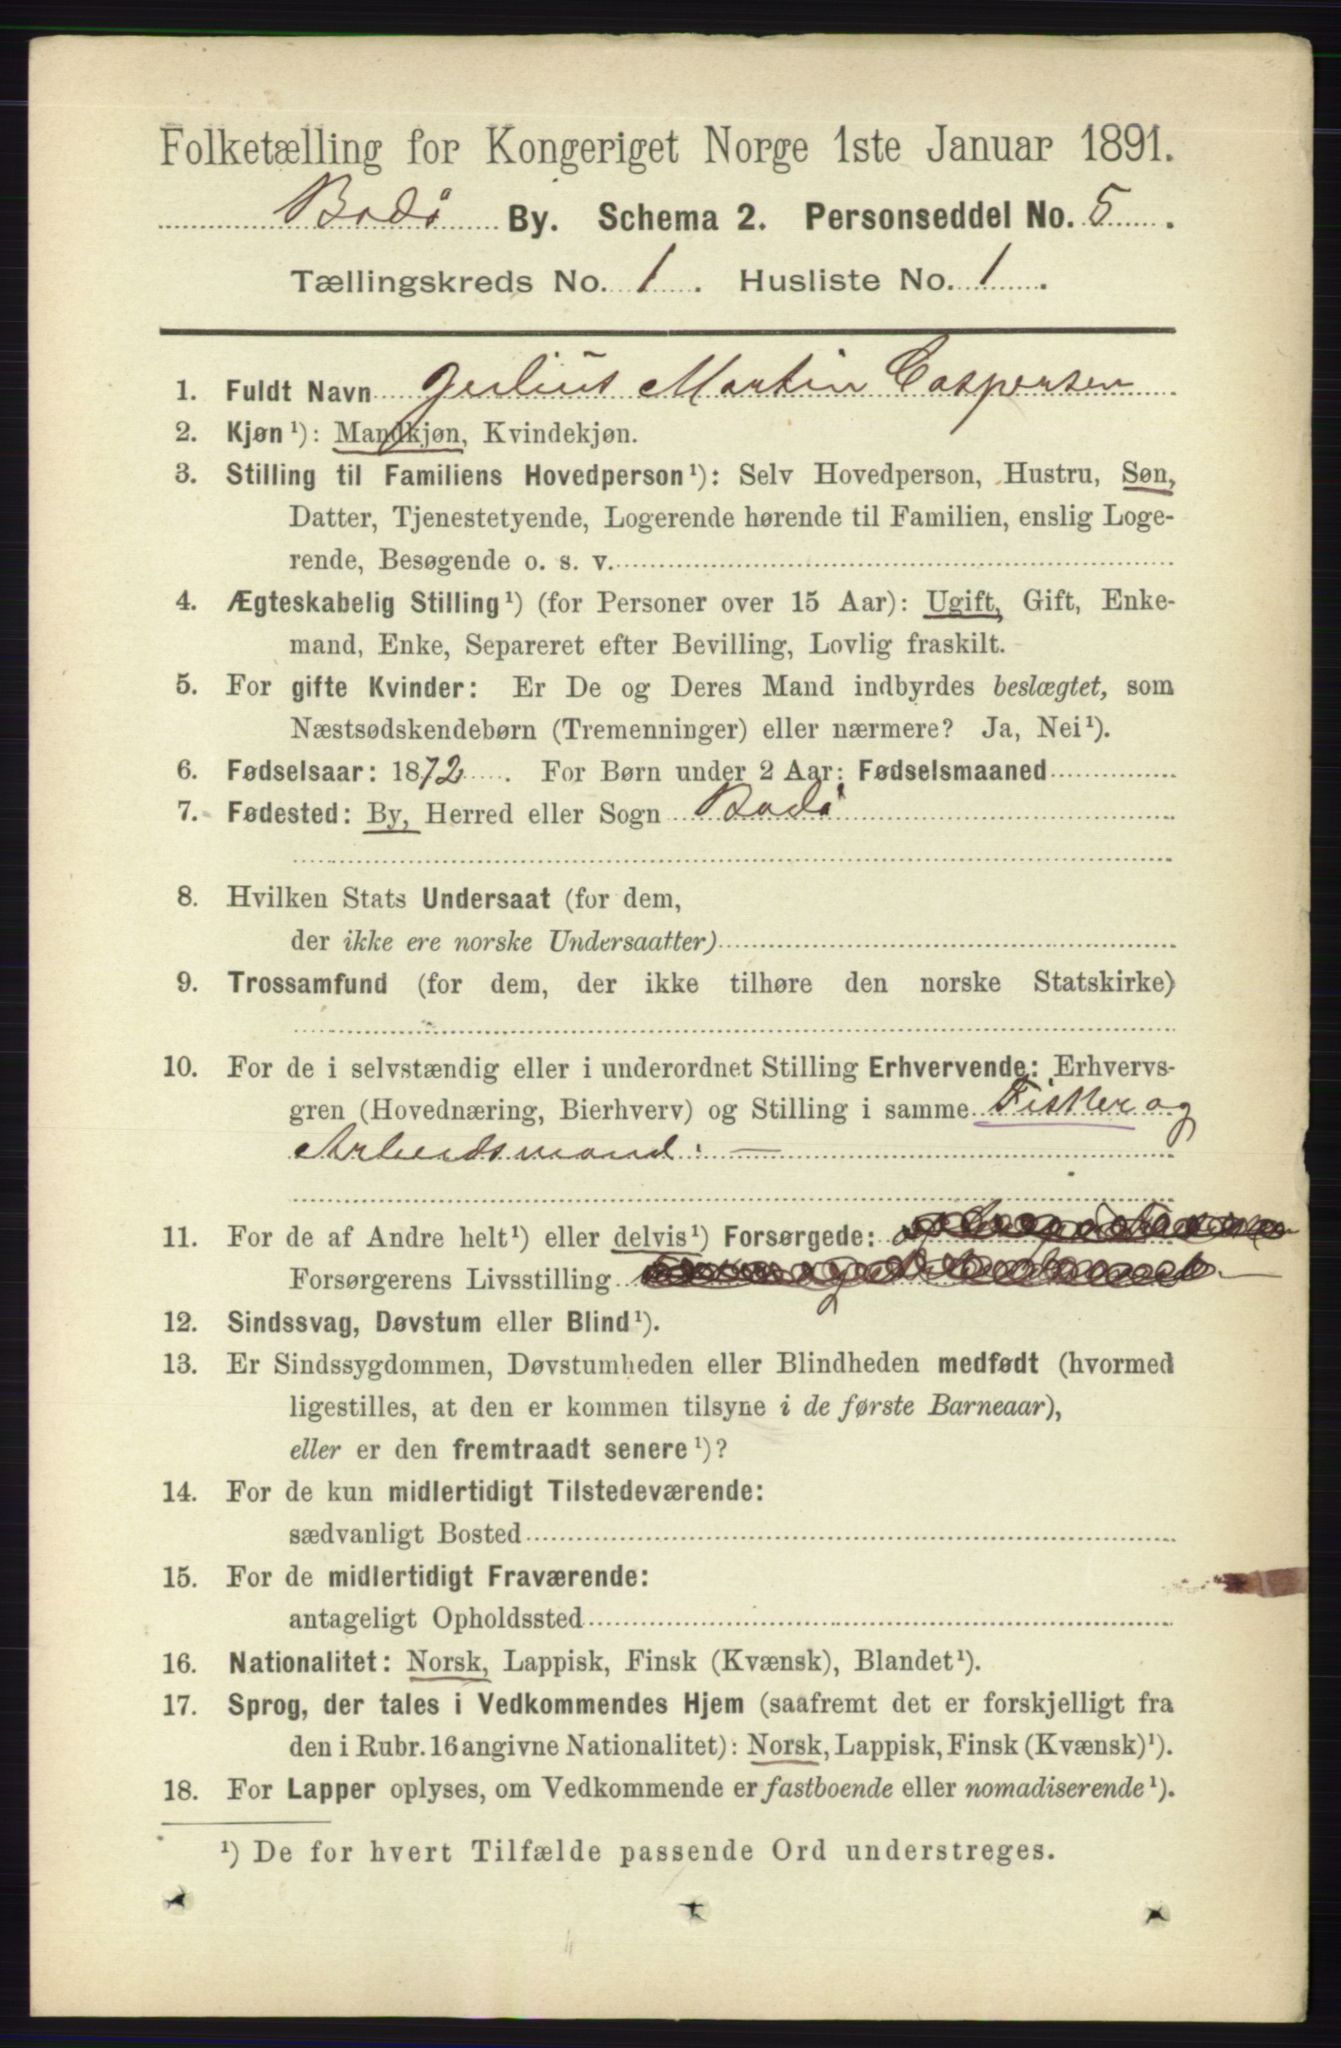 Folketælling for Kongeriget Norge 1ste Januar 1891.
Bodø By. Schema 2. Personseddel No. 5.
Tællingskreds No. 1. Husliste No. 1.
1. Fuldt Navn Julius Martin Caspersen
2. Kjøn¹): Mandkjøn, Kvindekjøn.
3. Stilling til Familiens Hovedperson¹): Selv Hovedperson, Hustru, Søn,
Datter, Tjenestetyende, Logerende hørende til Familien, enslig Loge-
rende, Besøgende o. s. v.
4. Ægteskabelig Stilling¹) (for Personer over 15 Aar): Ugift, Gift, Enke-
mand, Enke, Separeret efter Bevilling, Lovlig fraskilt.
5. For gifte Kvinder: Er De og Deres Mand indbyrdes beslægtet, som
Næstsødskendebørn (Tremenninger) eller nærmere? Ja, Nei¹).
6. Fødselsaar: 1872. For Børn under 2 Aar: Fødselsmaaned
7. Fødested: By, Herred eller Sogn Bodø
8. Hvilken Stats Undersaat (for dem,
der ikke ere norske Undersaatter)
9. Trossamfund (for dem, der ikke tilhøre den norske Statskirke)
10. For de i selvstændig eller i underordnet Stilling Erhvervende: Erhvervs-
gren (Hovednæring, Bierhverv) og Stilling i samme Fisker og
Arbeidsmand. —
11. For de af Andre helt¹) eller delvis¹) Forsørgede:
Forsørgerens Livsstilling
12. Sindssvag, Døvstum eller Blind¹).
13. Er Sindssygdommen, Døvstumheden eller Blindheden medfødt (hvormed
ligestilles, at den er kommen tilsyne i de første Barneaar),
eller er den fremtraadt senere¹)?
14. For de kun midlertidigt Tilstedeværende:
sædvanligt Bosted
15. For de midlertidigt Fraværende:
antageligt Opholdssted
16. Nationalitet: Norsk, Lappisk, Finsk (Kvænsk), Blandet¹).
17. Sprog, der tales i Vedkommendes Hjem (saafremt det er forskjelligt fra
den i Rubr. 16 angivne Nationalitet): Norsk, Lappisk, Finsk (Kvænsk)¹).
18. For Lapper oplyses, om Vedkommende er fastboende eller nomadiserende¹).
¹) De for hvert Tilfælde passende Ord understreges.